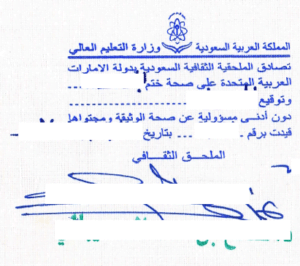 المملكة العربية السعودية وزارة التعليم العالي
تصادق الملحقية الثقافية السعودية بدولة الامارات
العربية المتحدة على صحة ختم
وتوقيع
دون أدنى مسؤولية عن صحة الوثيقة ومحتواها
قيدت برقم بتاريخ
الملحق الثقافي